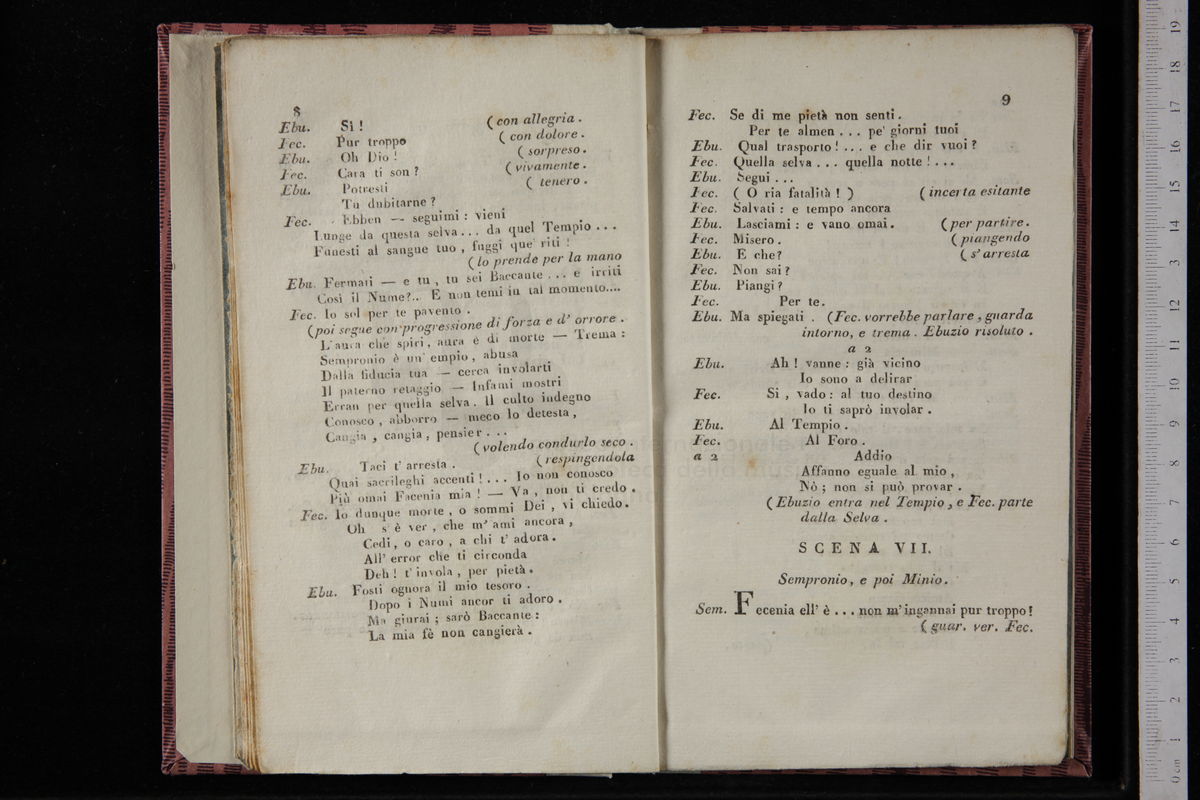 8
Ebu. Sì ! ( con allegria .
Fec. Pur troppo ( con dolore .
Ebu. Oh Dio ! ( sorpreso .
Fec. Cara ti son ? ( vivamente .
Ebu. Potresti ( tenero .
Tu dubitarne ?
Fec. Ebben — seguimi : vieni
Lunge da questa selva . . . da quel Tempio . . .
Funesti al sangue tuo , fuggi que' riti !
( lo prende per la mano
Ebu. Fermati — e tu , tu sei Baccante . . . e irriti
Così il Nume ?.. E non temi in tal momento....
Fec. Io sol per te pavento .
( poi segue con progressione di forza e d' orrore .
L' aura che spiri , aura è di morte — Trema :
Sempronio è un' empio , abusa
Dalla fiducia tua — cerca involarti
Il paterno retaggio — Infami mostri
Erran per quella selva . Il culto indegno
Conosco , abborro — meco lo detesta ,
Cangia , cangia , pensier . . .
( volendo condurlo seco .
Ebu. Taci t' arresta . ( respingendola
Quai sacrileghi accenti ! . . . Io non conosco
Più omai Facenia mia ! — Va , non ti credo .
Fec. Io dunque morte , o sommi Dei , vi chiedo .
Oh s' è ver , che m' ami ancora ,
Cedi , o caro , a chi t' adora .
All' error che ti circonda
Deh ! t' invola , per pietà .
Ebu. Fosti ognora il mio tesoro .
Dopo i Numi ancor ti adoro .
Ma giurai ; sarò Baccante :
La mia fè non cangierà .
9
Fec. Se di me pietà non senti .
Per te almen . . . pe' giorni tuoi
Ebu. Qual trasporto ! . . . e che dir vuoi ?
Fec. Quella selva . . . quella notte ! . . .
Ebu. Segui . . .
Fec. ( O ria fatalità ! ) ( incerta esitante
Fec. Salvati : e tempo ancora
Ebu. Lasciami : e vano omai . ( per partire .
Fec. Misero . ( piangendo
Ebu. E che ? ( s' arresta
Fec. Non sai ?
Ebu. Piangi ?
Fec. Per te .
Ebu. Ma spiegati . ( Fec. vorrebbe parlare , guarda
intorno , e trema . Ebuzio risoluto .
a 2
Ebu. Ah ! vanne : già vicino
Io sono a delirar
Fec. Si , vado : al tuo destino
Io ti saprò involar .
Ebu. Al Tempio .
Fec. Al Foro .
a 2 Addio
Affanno eguale al mio ,
Nò ; non si può provar .
( Ebuzio entra nel Tempio , e Fec. parte
dalla Selva .
SCENA VII.
Sempronio , e poi Minio .
Sem. Fecenia ell' è . . . non m' ingannai pur troppo !
( guar. ver. Fec.